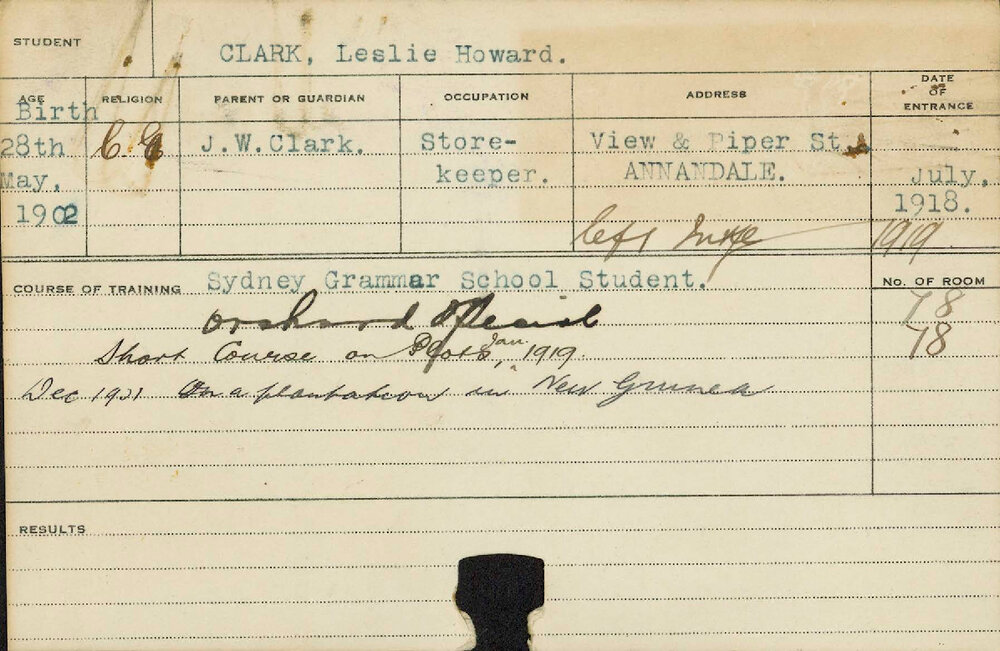 STUDENT
CLARK, Leslie Howard.
AGE RELIGION PARENT OR GUARDIAN OCCUPATION ADDRESS DATE OF ENTRANCE
Birth
28th C.E J.W.Clark. Store- View & Piper St.
May, keeper. ANNANDALE. July,
1902 1918.
left 1919
COURSE OF TRAINING Sydney Grammar School Student. No. OF ROOM
Orchard 78
Short Course on Jan. 1919. 78
Dec 1921 On a plantation in New Guinea
RESULTS